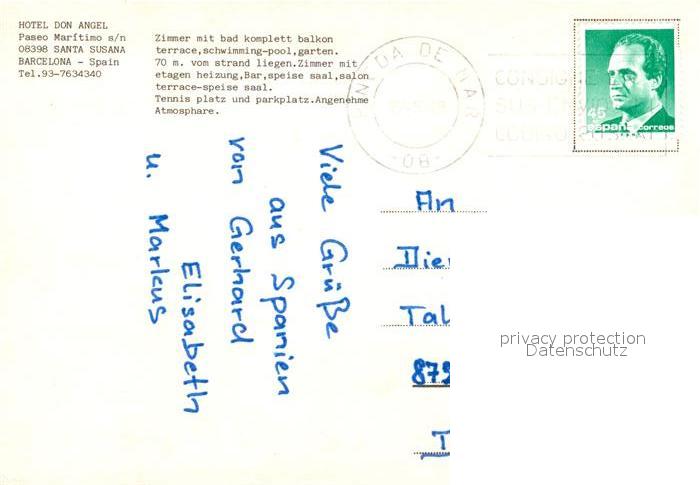 HOTEL DON ANGEL
Paseo Marítimo s/n
08398 SANTA SUSANA
BARCELONA - Spain
Tel.93-7634340
Zimmer mit bad komplett balkon
terrace,schwimming-pool,garten.
70 m. vom strand liegen.Zimmer mit
etagen heizung,Bar,speise saal,salon
terrace-speise saal.
Tennis platz und parkplatz.Angenehme
Atmosphare.
DA DE MAR
-08-
CONSIGNE
45
españa correos
Viele Grüße
aus Spanien
von Gerhard
Elisabeth
u. Markus
An
Die
Tal
879
T
privacy protection
Datenschutz